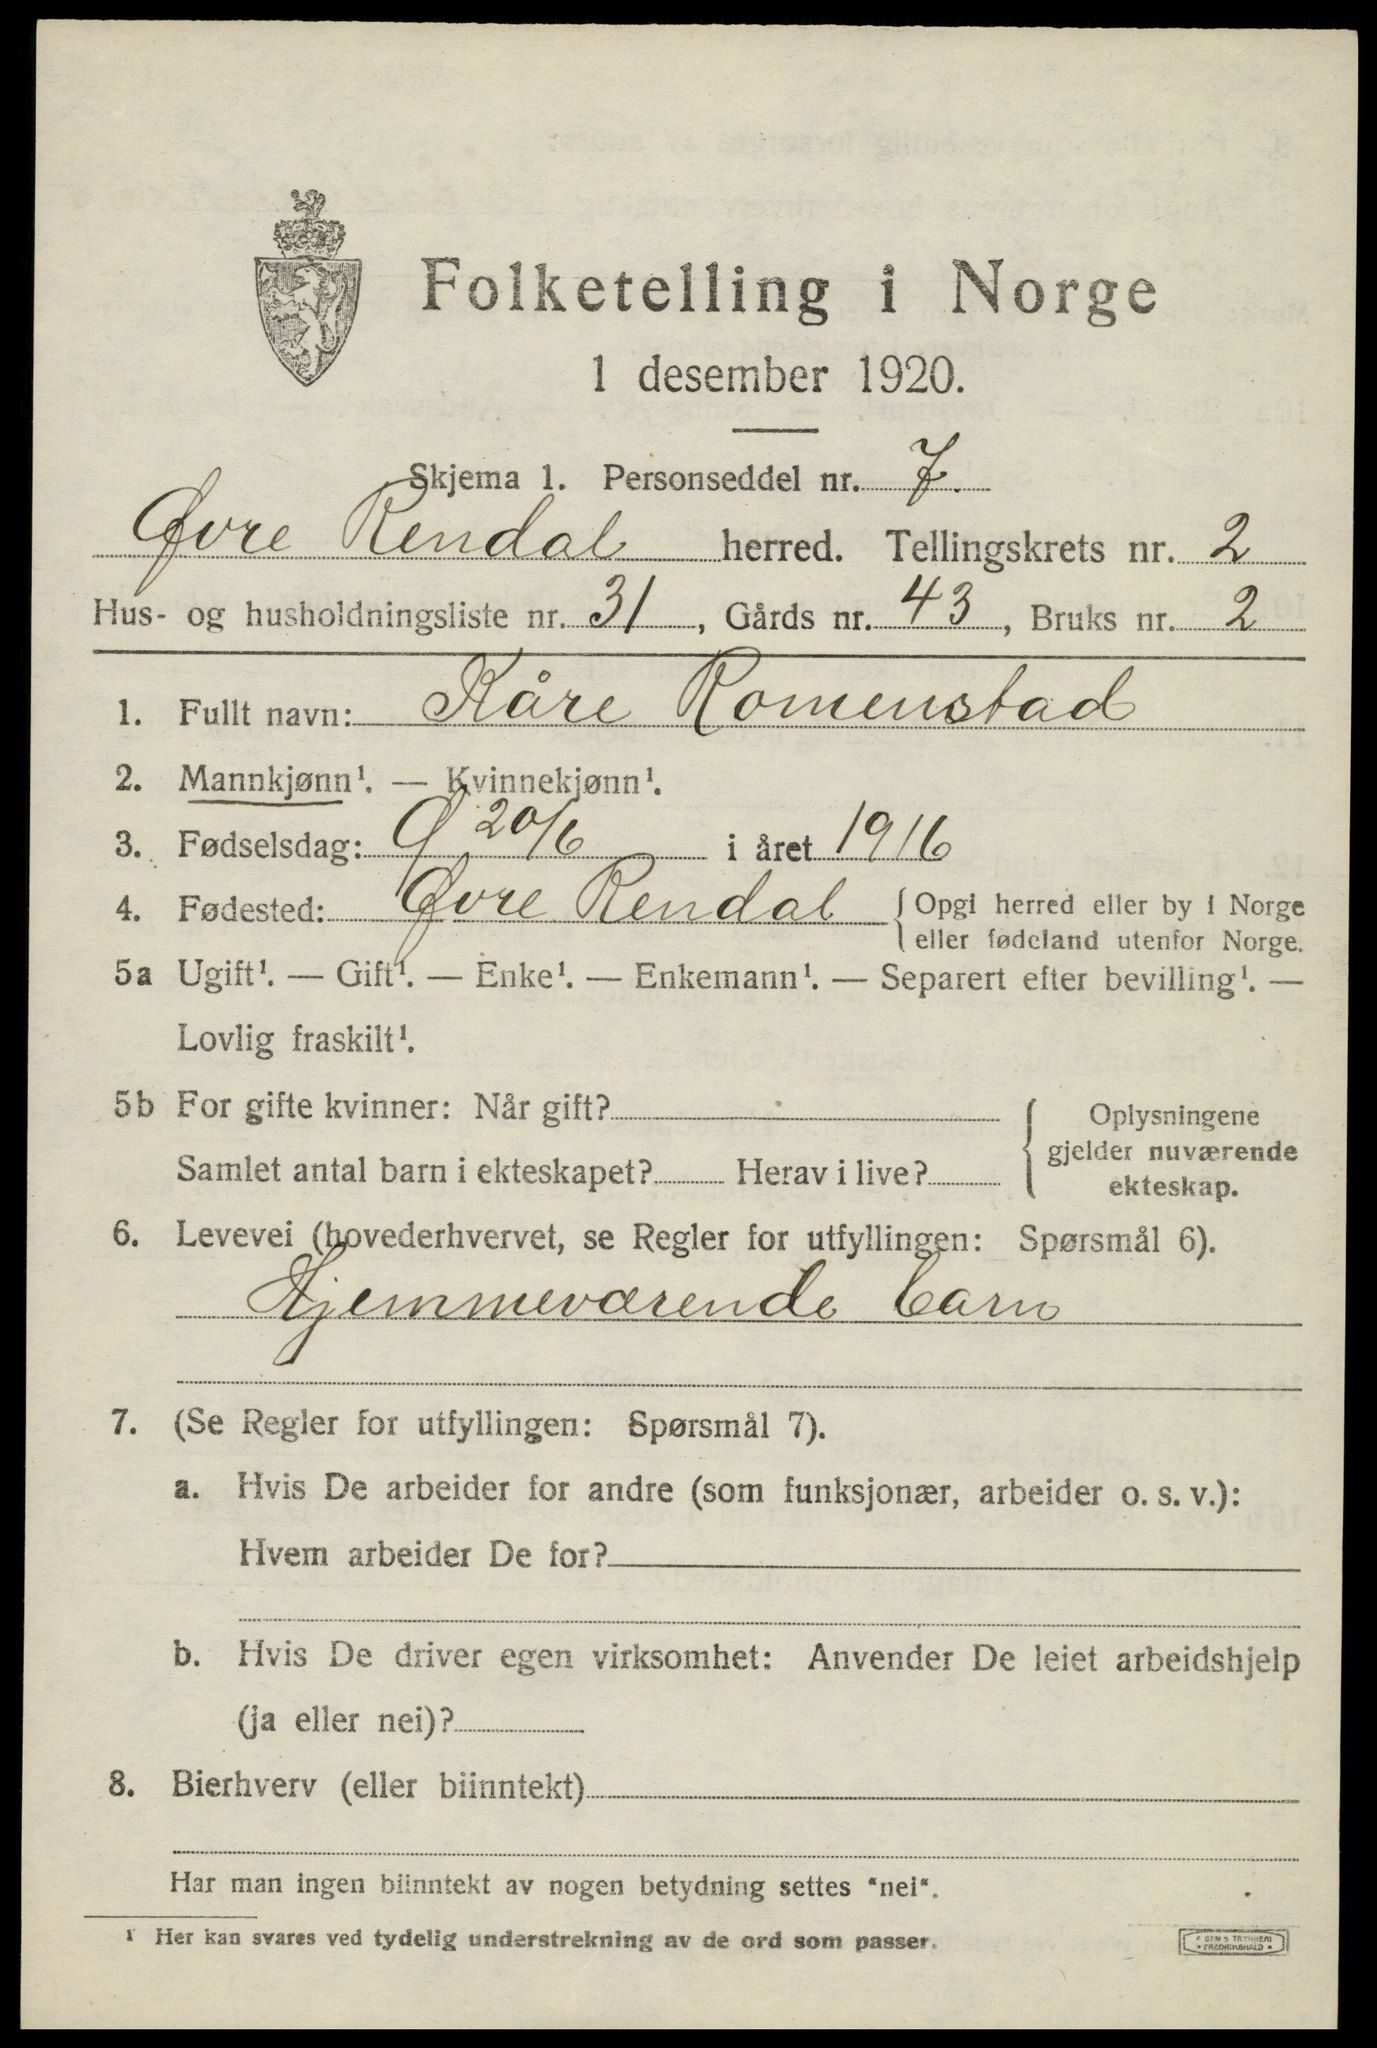 Folketelling i Norge
1 desember 1920.
Skjema 1. Personseddel nr. 7.
Øvre Rendal herred. Tellingskrets nr. 2
Hus- og husholdningsliste nr. 31, Gårds nr. 43, Bruks nr. 2
1. Fullt navn: Kåre Romenstad
2. Mannkjønn¹. — Kvinnekjønn¹.
3. Fødselsdag: 20/6 i året 1916
4. Fødested: Øvre Rendal { Opgi herred eller by i Norge
eller fødeland utenfor Norge.
5a Ugift¹. — Gift¹. — Enke¹. — Enkemann¹. — Separert efter bevilling¹. —
Lovlig fraskilt¹.
5b For gifte kvinner: Når gift?
Samlet antal barn i ekteskapet? Herav i live?
Oplysningene
gjelder nuværende
ekteskap.
6. Levevei (hovederhvervet, se Regler for utfyllingen: Spørsmål 6).
Hjemmeværende barn
7. (Se Regler for utfyllingen: Spørsmål 7).
a. Hvis De arbeider for andre (som funksjonær, arbeider o. s. v.):
Hvem arbeider De for?
b. Hvis De driver egen virksomhet: Anvender De leiet arbeidshjelp
(ja eller nei)?
8. Bierhverv (eller biinntekt)
Har man ingen biinntekt av nogen betydning settes "nei".
¹ Her kan svares ved tydelig understrekning av de ord som passer.
FREDRIKSHALD